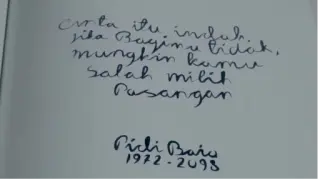 Cinta itu indah.
jika Bagimu tidak,
mungkin kamu
salah milih
Pasangan
Pidi Baiq
1972-2098